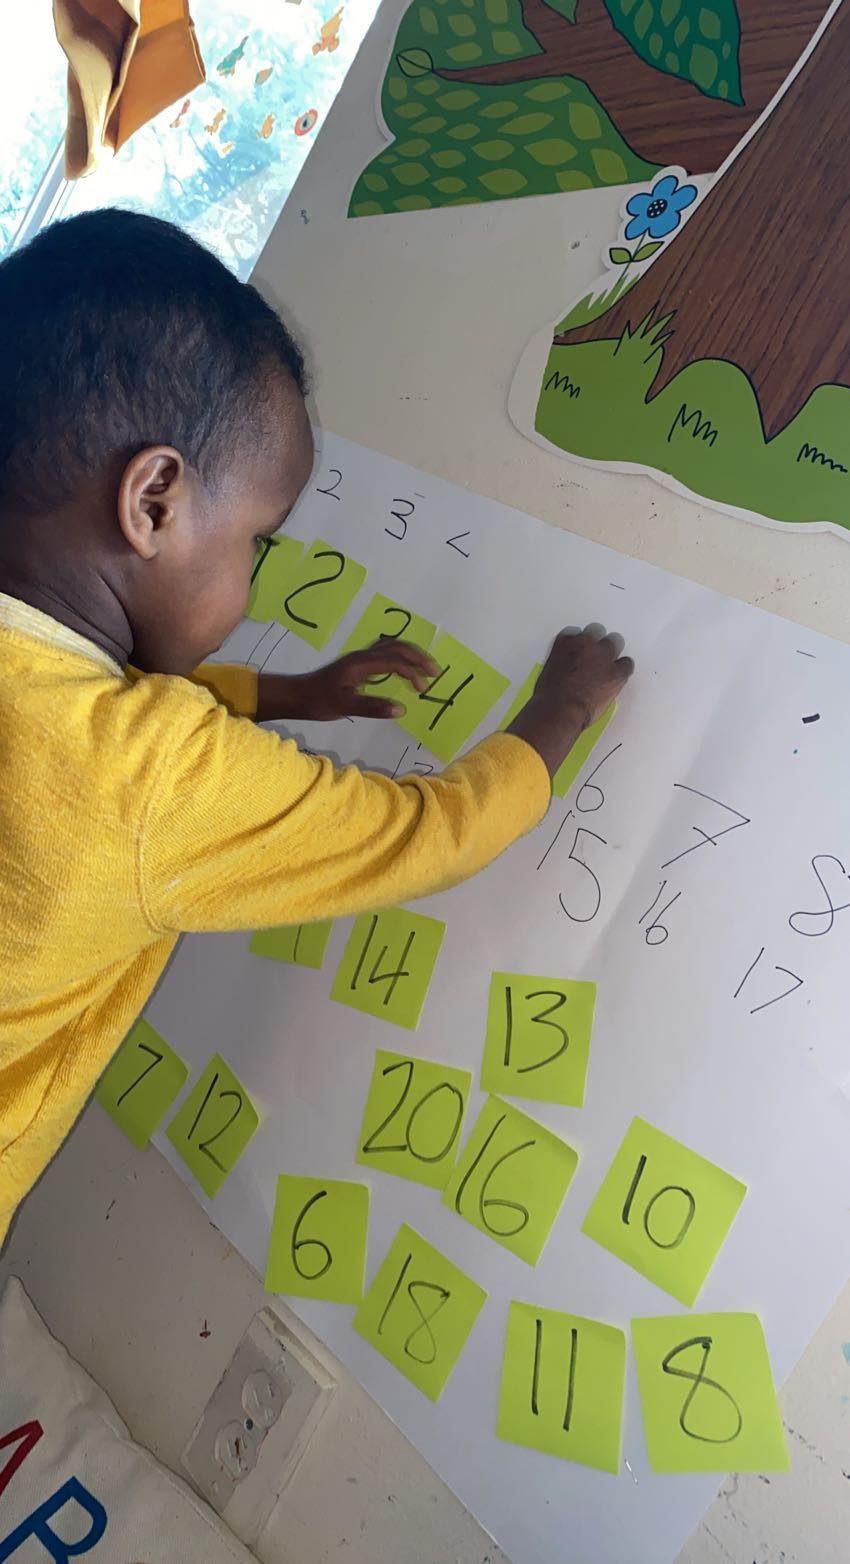 2 3
2 3 4
6 7 8
15 16 17
14
13
7 12 20 16 10
6 18 11 8
R